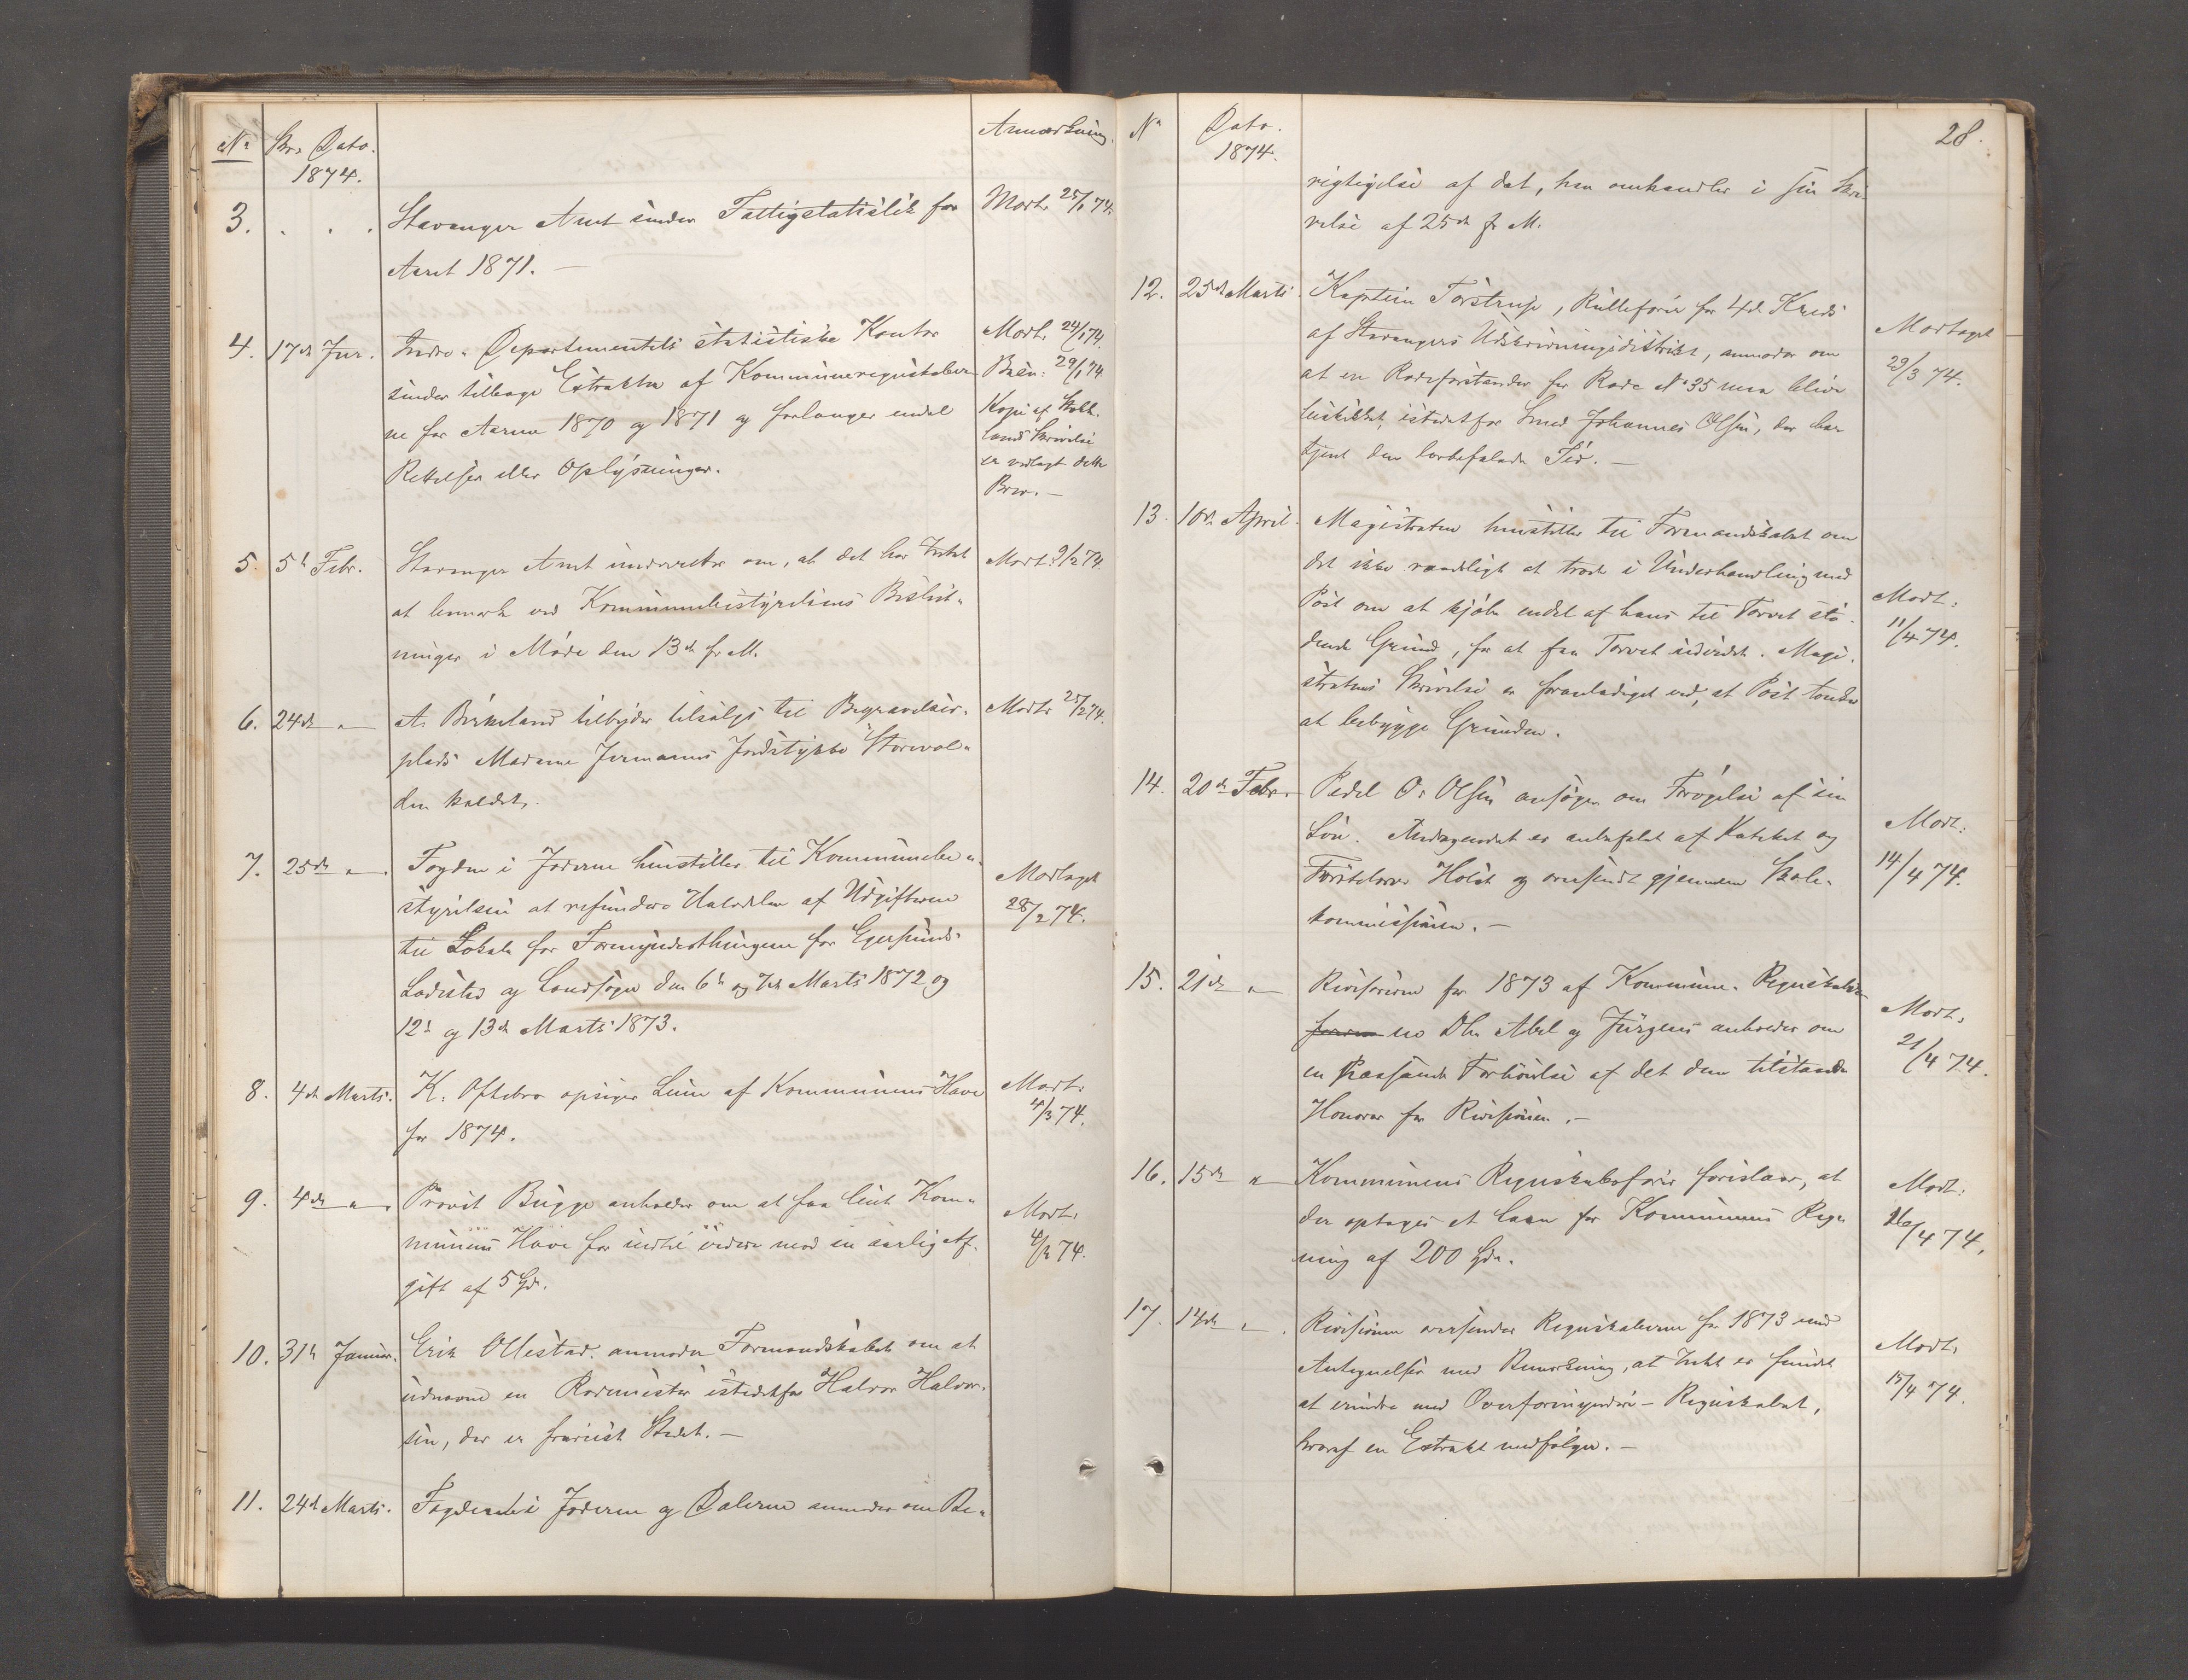 No Skr. Dato. Anmærkning.
1874.
3. . . . Stavanger Amt sender Fattigstatistik for Modt. 25/1 74.
Aaret 1871. —
4. 17de Jnr. Indre-Departementets statistiske Kontor Modt. 24/1 74.
sender tilbage Extrakter af Kommuneregnskaber- Besv: 29/1 74.
ne for Aarene 1870 og 1871 og forlanger endel Kopi af
Rettelser eller Oplysninger. lands Skrivelse
er vedlagt dette
Brev. —
5. 5te Febr. Stavanger Amt underretter om, at det har Intet Modt. 9/2 74.
at bemærke ved Kommunebestyrelsens Beslut-
ninger i Møde den 13de f. M.
6. 24de — A. Birkeland tilbyder tilsalgs til Begravelses- Modt. 25/2 74.
plads Madame Jermanns Jordstykke "Storevol-
den kaldet.
7. 25de — Fogden i Jæderen henstiller til Kommunebe- Modtaget
styrelsen at refundere Halvdelen af Udgifterne 28/2 74.
til Lokale for Formynderthingene for Egersunds
Ladested og Landsogn den 6te og 7de Marts 1872 og
12te og 13de Marts 1873.
8. 4de Marts. K. Oftebro opsiger Leien af Kommunens Have Modt.
for 1874. 4/3 74.
9. 4de — Provst Bugge anholder om at faa leiet Kom- Modt.
munens Have for indtil videre mod en aarlig Af- 4/3 74.
gift af 5 Spd.
10. 31te Januar. Erik Ollestad anmoder Formandskabet om at
udnævne en Rodemester istedetfor Halvor Halvor-
sen, der er frareist Stedet. —
11. 24de Marts. Fogden i Jæderen og Dalerne anmoder om Be-
No Dato. 28.
1874.
rigtigelse af det, han omhandler i sin Skri-
velse af 25de f. M.
12. 25de Marts Kaptein Torstrup, Rullefører for 4de Kreds
af Stavangers Udskrivningsdistrikt, anmoder om Modtaget
at en Rodeforstander for Rode No 35 maa blive 29/3 74.
beskikket, istedetfor Smed Johannes Olsen, der har
tjent den lovbefalede Tid. —
13. 10de April. Magistraten henstiller til Formandskabet om
det ikke raadeligt at træde i Underhandling med
Post om at kjøbe endel af hans til Torvet stø- Modt:
dende Grund, for at faa Torvet udvidet. Magi- 11/4 74.
stratens Skrivelse er foranlediget ved, at Post tænker
at bebygge Grunden.
14. 20de Febr. Pedel O. Olsen ansøger om Forøgelse af sin
Løn. Andragendet er anbefalet af Kateket og Modt:
Førstelærer Holst og oversendt gjennem Skole- 14/4 74.
kommissionen. —
15. 21de — Revisorerne for 1873 af Kommune-Regnskaber-
ne D'Hr. Abel og Jürgens anholder om Modt.
en passende Forhøielse af det dem tilstaaede 21/4 74.
Honorar for Revisionen. —
16. 15de — Kommunens Regnskabsfører foreslaar, at Modt:
der optages et Laan for Kommunens Reg- 16/4 74.
ning af 200 Spd.
17. 14de — Revisionen oversender Regnskaberne for 1873 med
Antegnelser med Bemærkning, at Intet er fundet Modt.
at erindre mod Overformynderi-Regnskabet, 15/4 74.
hvoraf en Extrakt medfølger. —